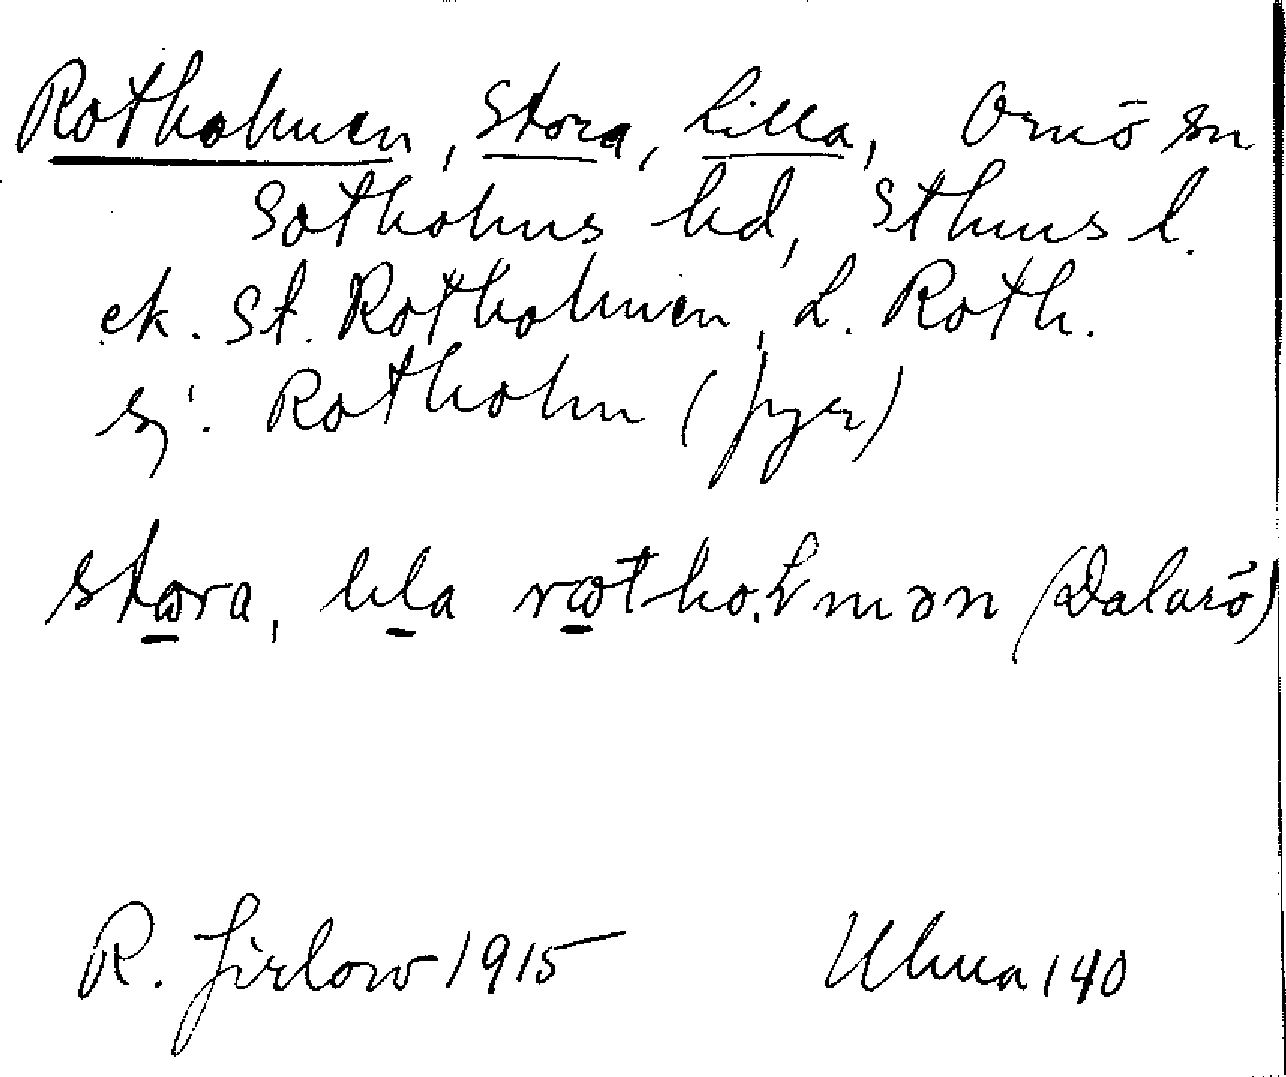 Rotholmen, Stora, Lilla, Ornö sn
Sotholms hd, Sthms l.
ek. St. Rotholmen, L. Roth.
sj. Rotholm (fyr)
stωra, lıla rωthoḷmən (Dalarö)
R. Jirlow 1915 Ulma 140